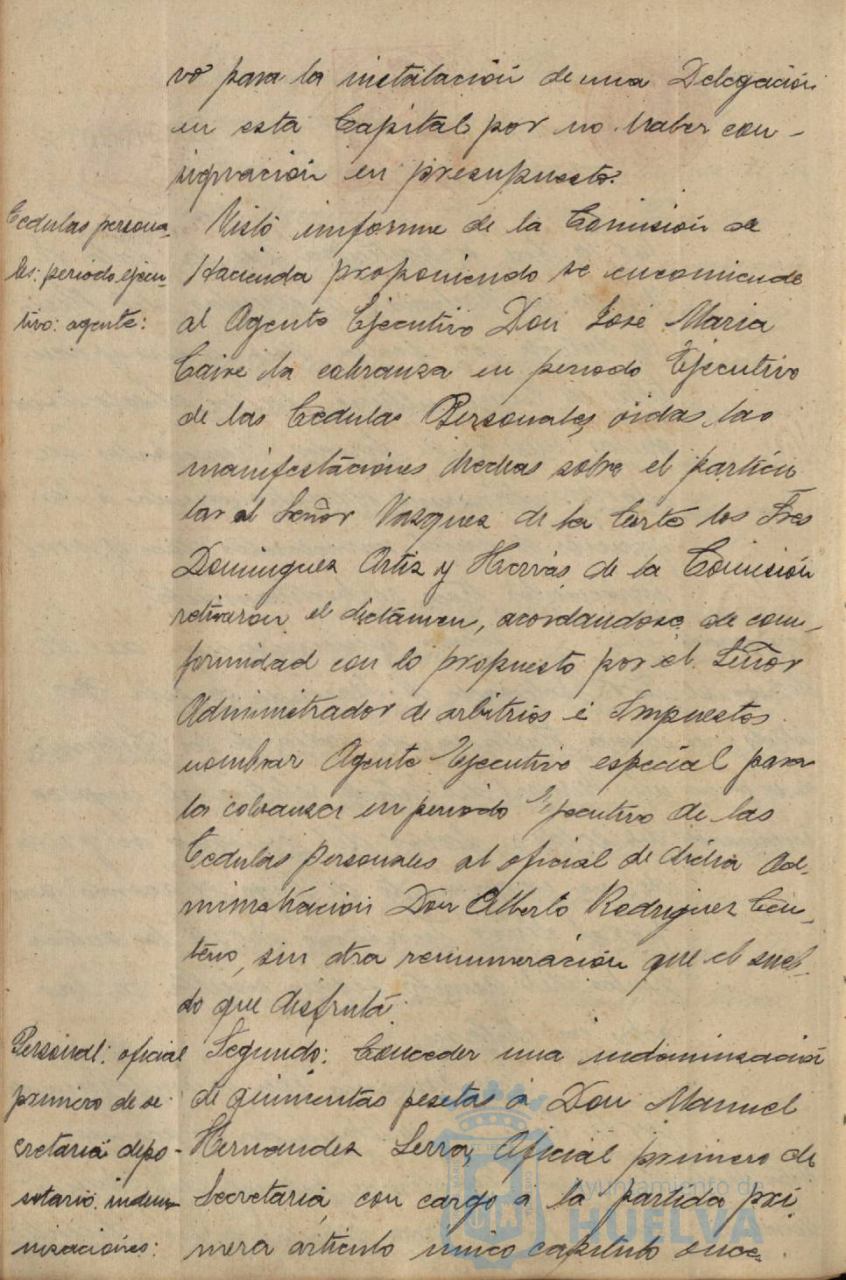 vo para la instalación de una Delegación
en esta Capital por no haber con-
signación en presupuesto.
Cedulas persona-
les: periodo ejecu-
tivo: agente:
Visto imforme de la Comisión de
Hacienda proponiendo se encomiende
al Agente Ejecutivo Don José Maria
la cobranza en periodo Ejecutivo
de las Cedulas Personales, oidas las
manifestaciónes hechas sobre el particu
lar al Señor Vazquez de la Corte los Sres
Dominguez Ortiz y Hervás de la Comisión
retiraron el dictámen, acordandose de con-
formidad con lo propuesto por el Señor
Administrador de arbitrios é Impuestos
nombrar Agente Ejecutivo especial para
la cobranza en periodo Ejecutivo de las
Cedulas personales al oficial de dicha Ad-
ministración Don Alberto Rodriguez Cen-
teno, sin otra remuneración que el suel-
do que disfruta.
Personal: oficial
primero de se-
cretaria depo-
sitario. indem-
nizaciónes:
Segundo: Conceder una indeminización
de quinientas pesetas á Don Manuel
Hernandez Serra, Oficial primero de
Secretaria, con cargo á la partida pri
mera articulo único capitulo once.
Ayuntamiento de
HUELVA